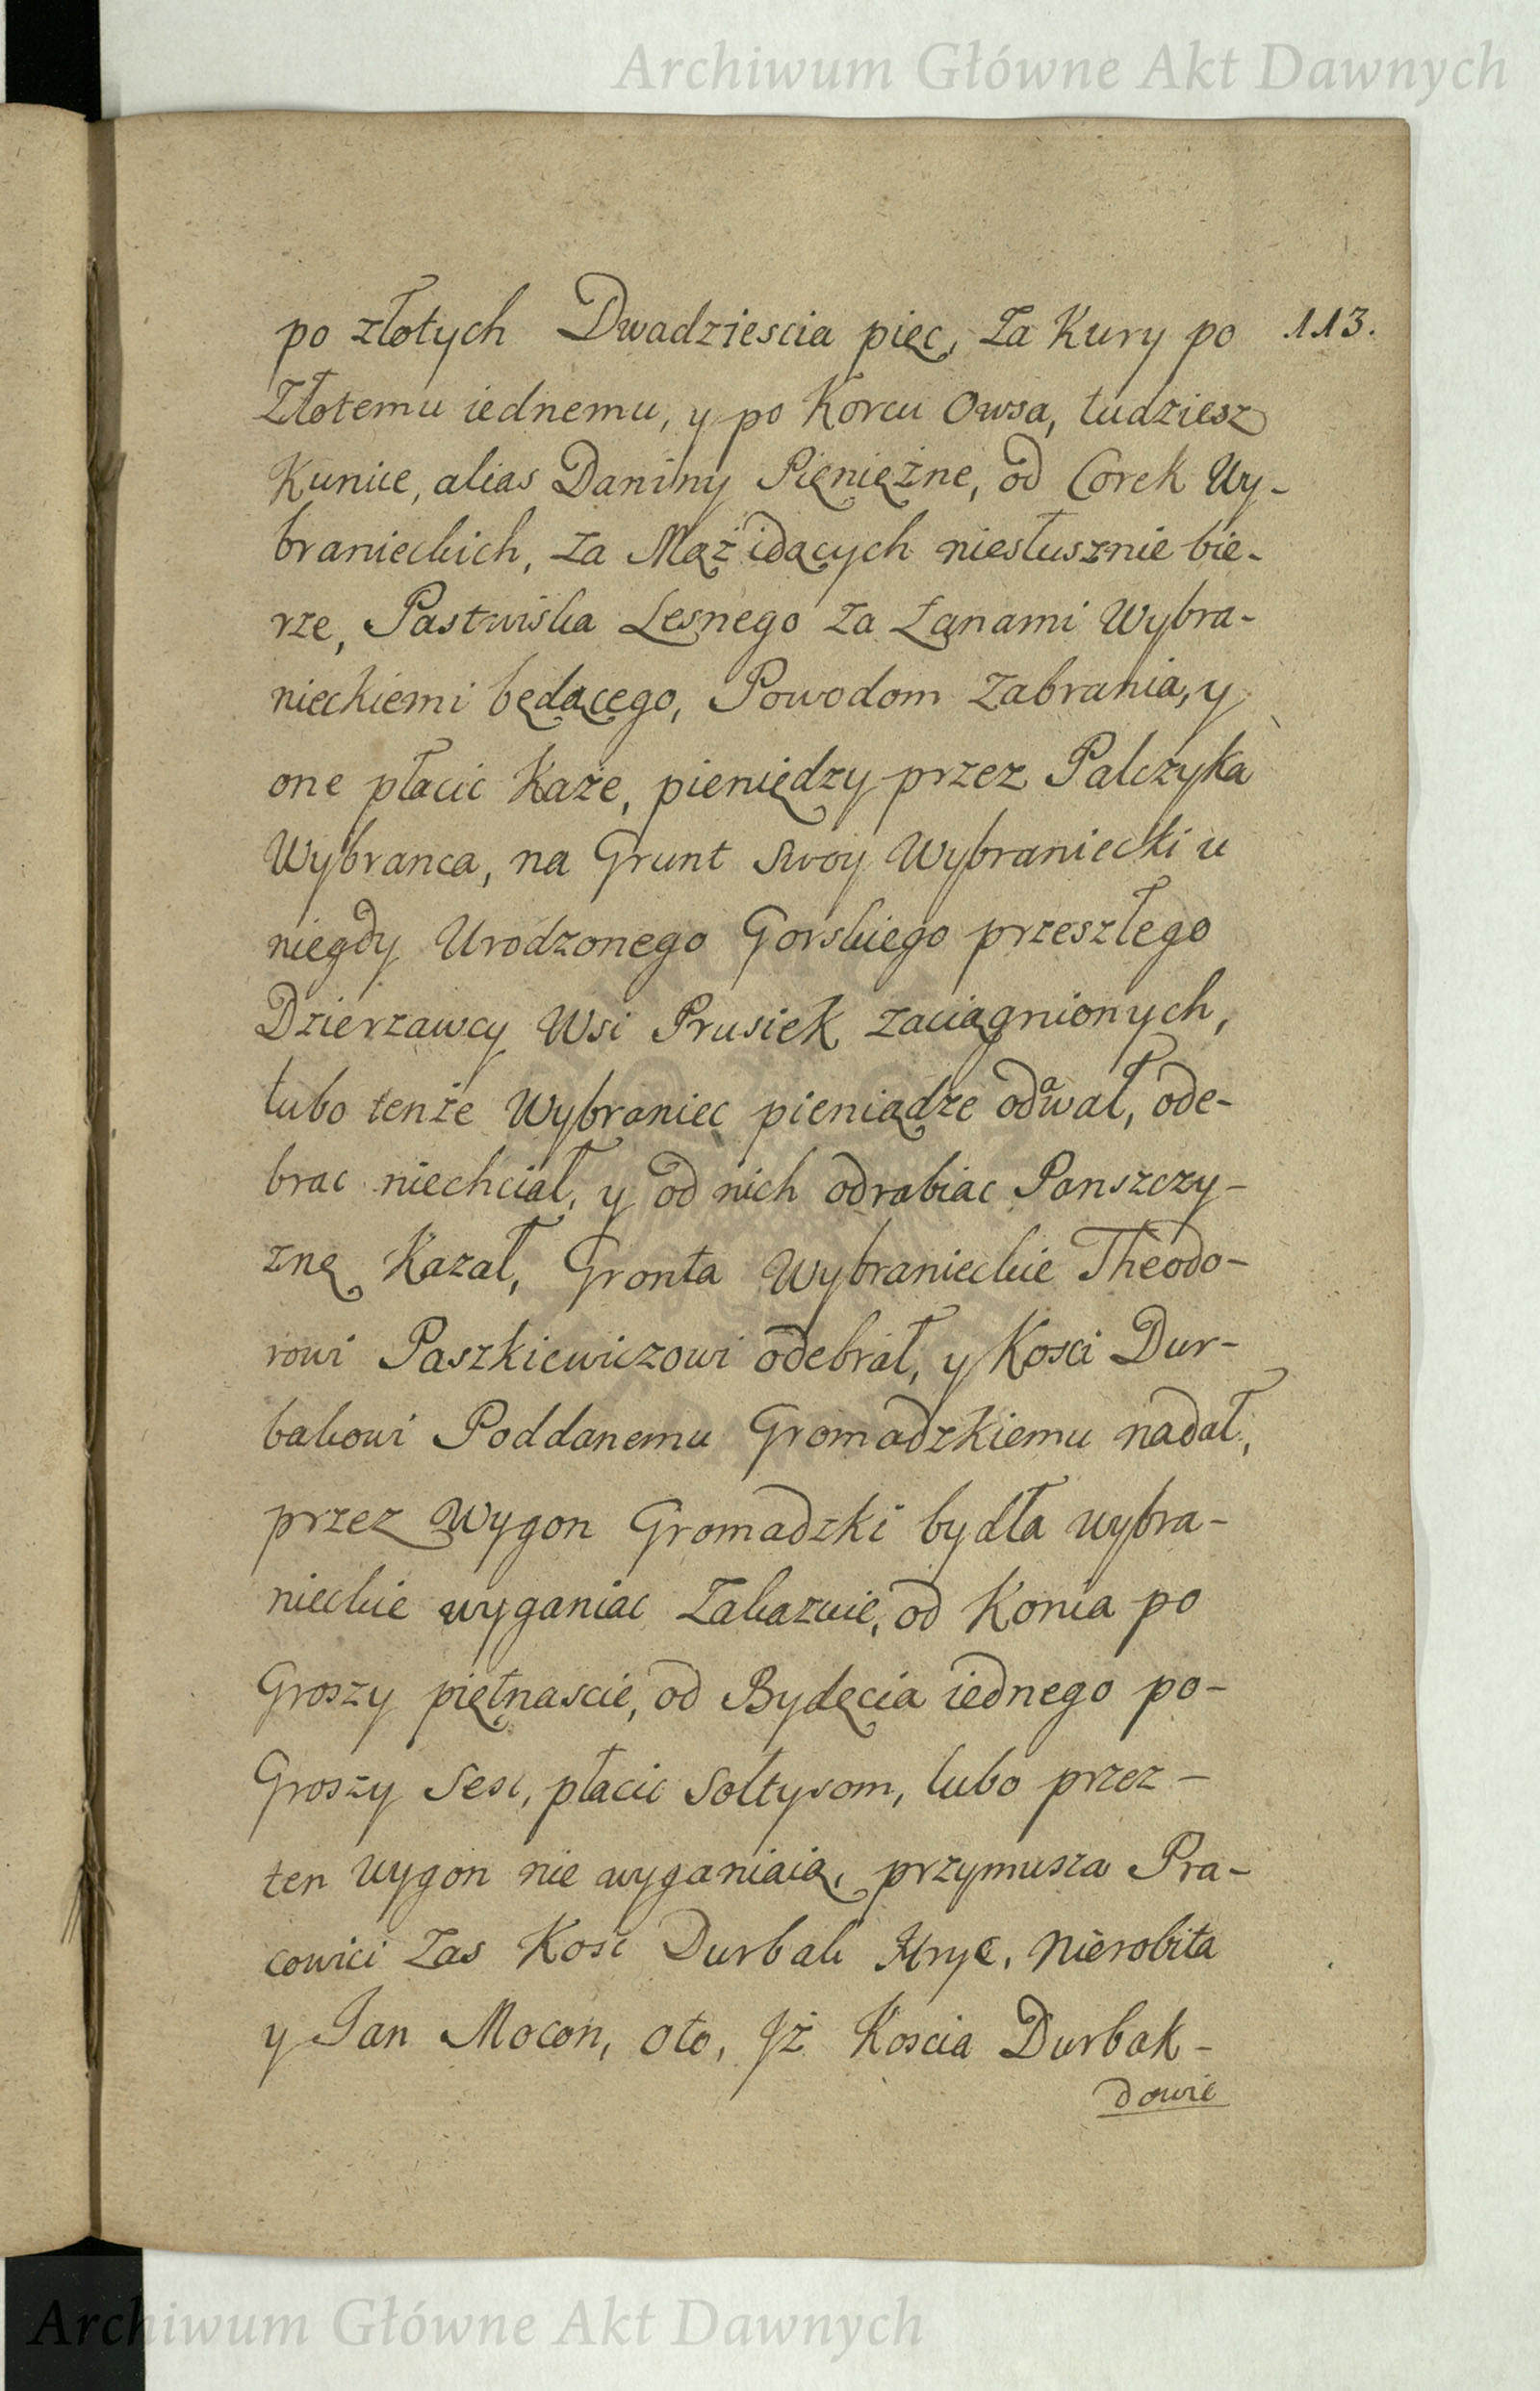 Archiwum Główne Akt Dawnych
113.
po złotych Dwadziescia pięc, Za Kury po
Złotemu iednemu, y po Korcu Owsa, tudziesz
Kunice, alias Daniny Pięniężne, od Corek Wy-
branieckich, Za Mąż idących niesłusznie bie-
rze, Pastwiska Lesnego Za Łąnami Wybra-
nieckiemi będącego, Powodom Zabrania, y
one płacic Każe, pieniędzy przez Palczyka
Wybranca, na Grunt Swoy Wybraniecki u
niegdy Urodzonego Gorskiego przeszłego
Dzierzawcy Wsi Prusiek Zaciągnionych,
lubo tenże Wybraniec pieniądze odawał, ode-
brac niechciał, y od nich odrabiac Panszczy-
znę Kazał, Gronta Wybranieckie Theodo-
rowi Paszkiewiczowi odebrał, y Kosci Dur-
bakowi Poddanemu Gromadzkiemu nadał,
przez Wygon Gromadzki bydła wybra-
nieckie wyganiac Zakazuie, od Konia po
Groszy piętnascie, od Bydęcia iednego po-
Groszy Sesc, płacic Sołtysom, lubo przez-
ten wygon nie wyganiaią, przymusza Pra-
cowici Zas Kosc Durbak Hryc, Nierobita
y Jan Mocon, oto, Jż Koscia Durbak-
dowie
Archiwum Główne Akt Dawnych